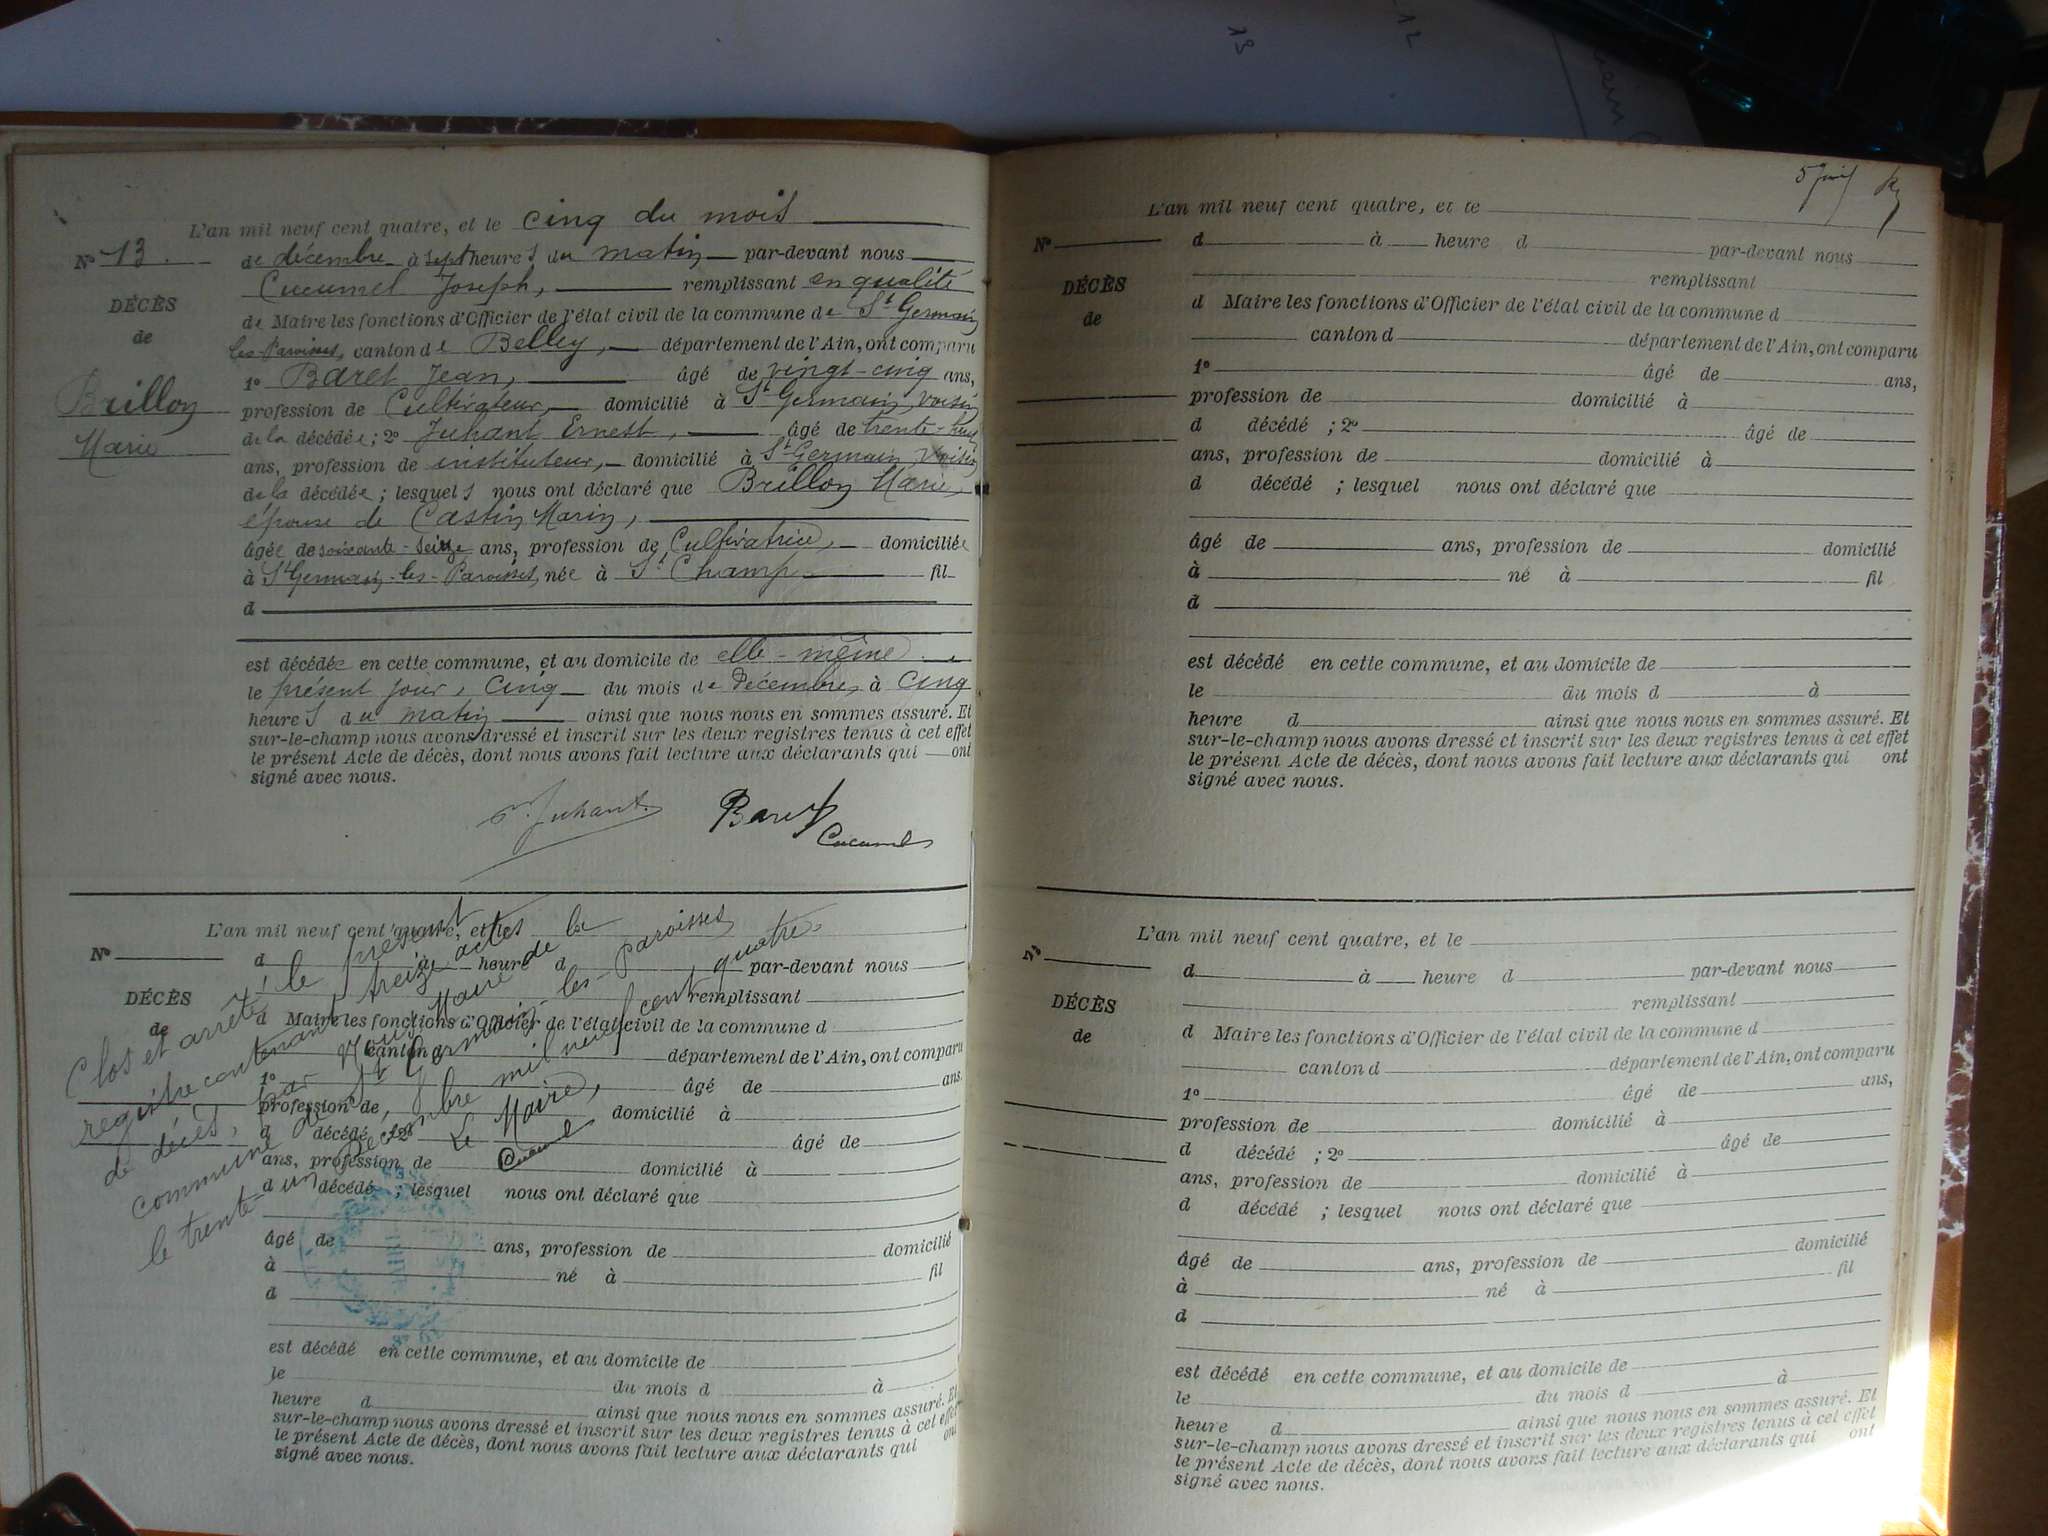 L'an mil neuf cent quatre, et le cinq du mois
No 13. de décembre à sept heures du matin par-devant nous
Cucumel Joseph, remplissant en qualité
DÉCÈS
de Maire les fonctions d'Officier de l'état civil de la commune de St Germain
de
les-Paroisses, canton de Belley, département de l'Ain, ont comparu
1o Baret Jean, âgé de vingt-cinq ans,
Brillon
profession de Cultivateur, domicilié à St Germain, voisin
de la décédée; 2o Juhant Ernest, âgé de trente-huit
Marie
ans, profession de instituteur, domicilié à St Germain, voisin
de la décédée; lesquels nous ont déclaré que Brillon Marie,
épouse de Castin Marin,
âgée de soixante-seize ans, profession de Cultivatrice, domiciliée
à St Germain-les-Paroisses, née à St Champ fil
d
est décédée en cette commune, et au domicile de elle-même
le présent jour, cinq du mois de Décembre, à cinq
heures du matin ainsi que nous nous en sommes assuré. Et
sur-le-champ nous avons dressé et inscrit sur les deux registres tenus à cet effet
le présent Acte de décès, dont nous avons fait lecture aux déclarants qui ont
signé avec nous.
Juhant. Baret
Cucumel
L'an mil neuf cent quatre, et le
No d à heure d par-devant nous
remplissant
DÉCÈS
d Maire les fonctions d'Officier de l'état civil de la commune d
de
canton d département de l'Ain, ont comparu
1o âgé de ans,
profession de domicilié à
d décédé ; 2o âgé de
ans, profession de domicilié à
d décédé ; lesquel nous ont déclaré que
âgé de ans, profession de domicilié
à né à fil
d
est décédé en cette commune, et au domicile de
le du mois d à
heure d ainsi que nous nous en sommes assuré. Et
sur-le-champ nous avons dressé et inscrit sur les deux registres tenus à cet effet
le présent Acte de décès, dont nous avons fait lecture aux déclarants qui ont
signé avec nous.
Clos et arrêté le présent
registre contenant treize actes
de décès, par Nous, Maire de la
commune de St Germain-les-Paroisses
le trente-un Décembre mil neuf cent quatre.
Le Maire,
Cucumel
L'an mil neuf cent quatre, et le
No d à heure d par-devant nous
remplissant
DÉCÈS
d Maire les fonctions d'Officier de l'état civil de la commune d
de
canton d département de l'Ain, ont comparu
1o âgé de ans,
profession de domicilié à
d décédé ; 2o âgé de
ans, profession de domicilié à
d décédé ; lesquel nous ont déclaré que
âgé de ans, profession de domicilié
à né à fil
d
est décédé en cette commune, et au domicile de
le du mois d à
heure d ainsi que nous nous en sommes assuré. Et
sur-le-champ nous avons dressé et inscrit sur les deux registres tenus à cet effet
le présent Acte de décès, dont nous avons fait lecture aux déclarants qui ont
signé avec nous.
L'an mil neuf cent quatre, et le
No d à heure d par-devant nous
remplissant
DÉCÈS
d Maire les fonctions d'Officier de l'état civil de la commune d
de
canton d département de l'Ain, ont comparu
1o âgé de ans,
profession de domicilié à
d décédé ; 2o âgé de
ans, profession de domicilié à
d décédé ; lesquel nous ont déclaré que
âgé de ans, profession de domicilié
à né à fil
d
est décédé en cette commune, et au domicile de
le du mois d à
heure d ainsi que nous nous en sommes assuré. Et
sur-le-champ nous avons dressé et inscrit sur les deux registres tenus à cet effet
le présent Acte de décès, dont nous avons fait lecture aux déclarants qui ont
signé avec nous.